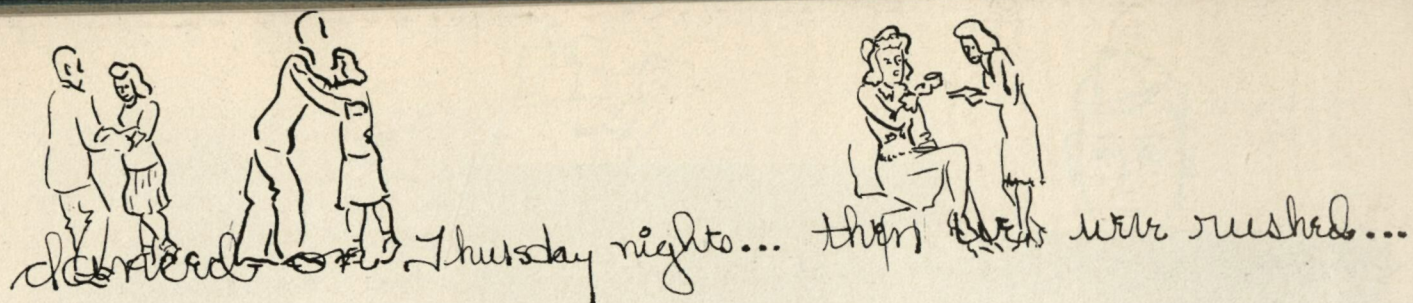 danced on Thursday nights... then we were rushed...